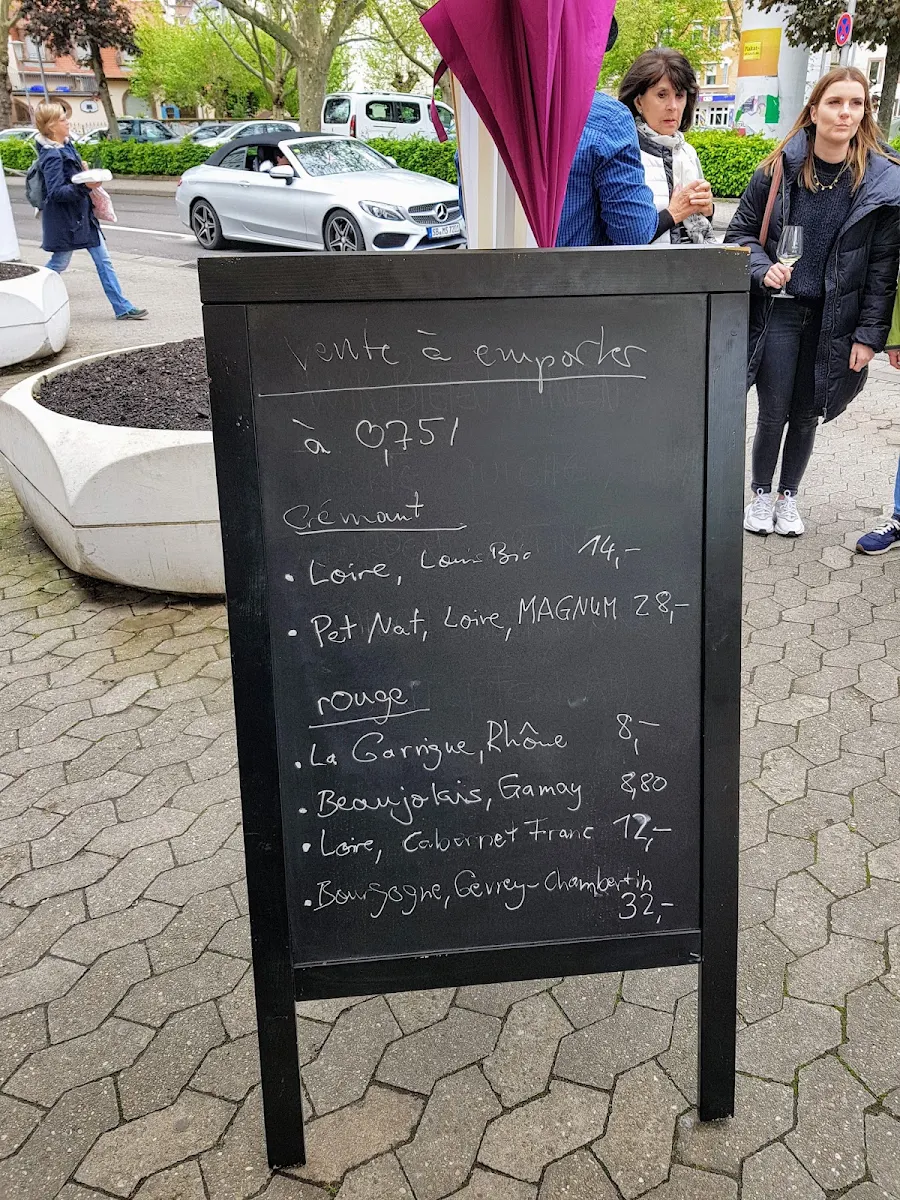 Vente à emporter
à 0,75l
Crémant
• Loire, Louis Bio 14,-
• Pet Nat, Loire, MAGNUM 28,-
rouge
• La Garrigue, Rhône 8,-
• Beaujolais, Gamay 8,80
• Loire, Cabernet Franc 12,-
• Bourgogne, Gevrey-Chambertin
32,-